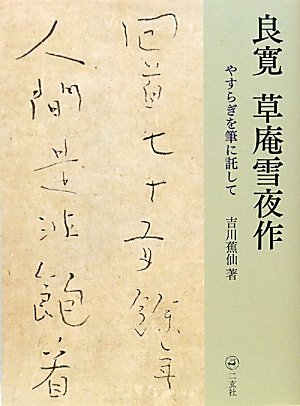 良寛 草庵雪夜作
やすらぎを筆に託して
吉川蕉仙 著
二玄社
回首七十有餘年
人間是非飽看